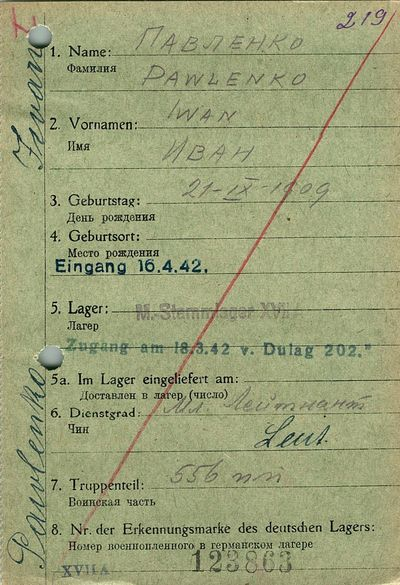 219
1. Name: ПАВЛЕНКО
Фамилия
PAWLENKO
2. Vornamen: IWAN
Имя
ИВАН
21-IX-1909
3. Geburtstag:
День рождения
4. Geburtsort:
Место рождения
Eingang 16.4.42.
5. Lager: M.-Stammlager XVII
Лагерь
Zugang am 18.3.42 v. Dulag 202."
5a. Im Lager eingeliefert am:
Доставлен в лагерь (число)
6. Dienstgrad: Мл. Лейтнант
Чин
Leut.
7. Truppenteil: 556 пп
Воинская часть
8. Nr. der Erkennungsmarke des deutschen Lagers:
Номер военнопленного в германском лагере
123863
XVII A
Pawlenko Iwan